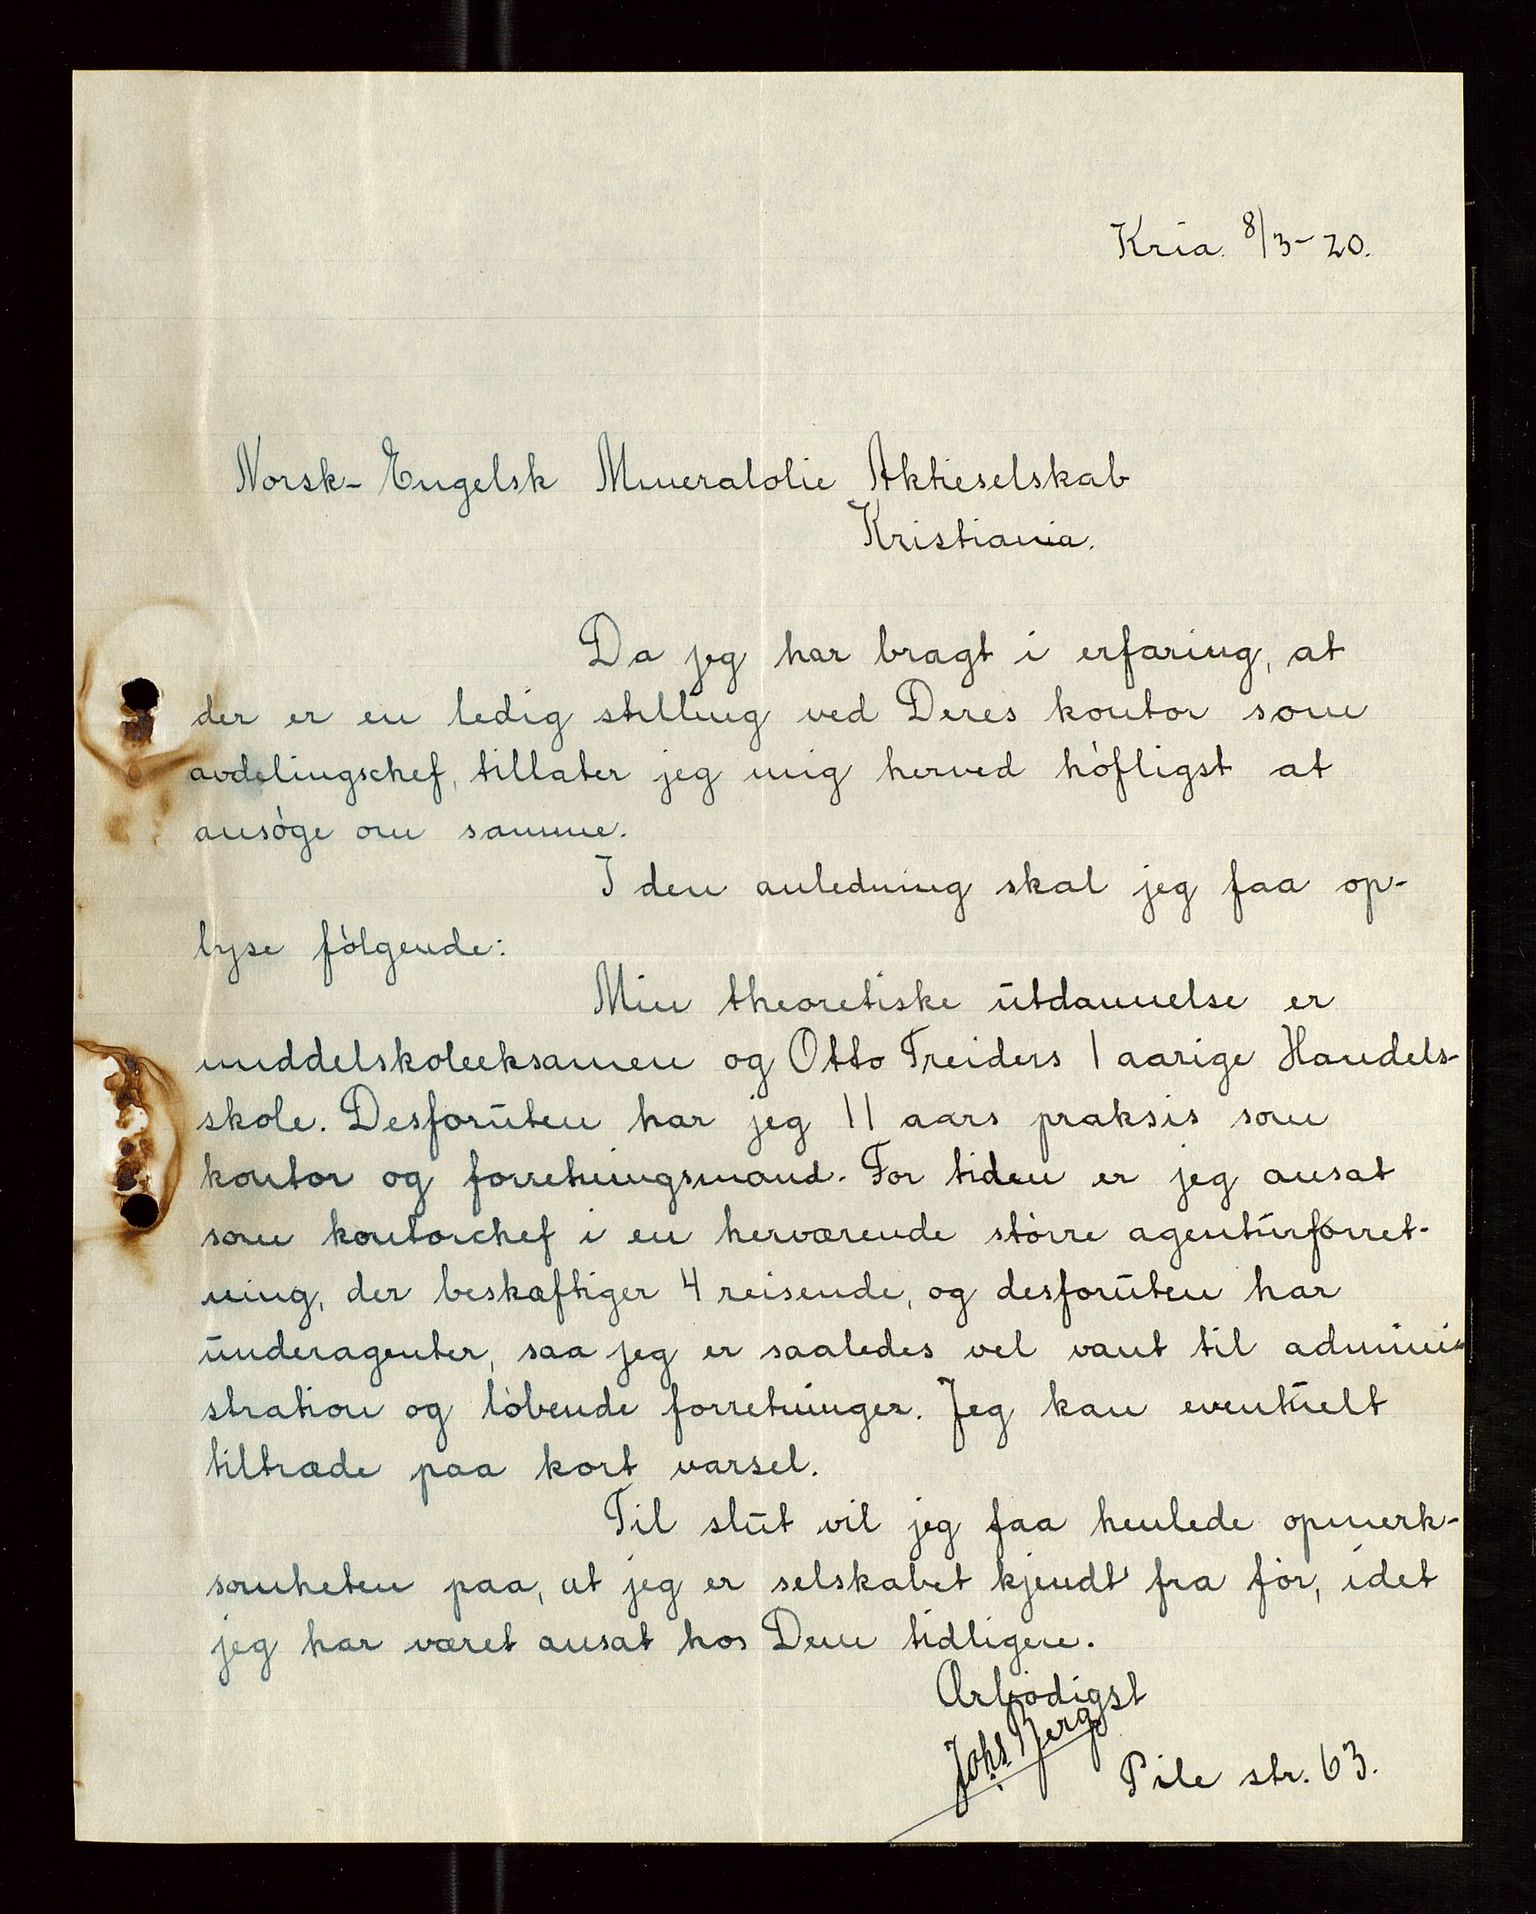 Kria. 8/3-20.
Norsk-Engelsk Mineralolie Aktieselskab
Kristiania.
Da jeg har bragt i erfaring, at
der er en ledig stilling ved Deres kontor som
avdelingschef, tillater jeg mig herved höfligst at
ansöge om samme.
I den anledning skal jeg faa op-
lyse fölgende:
Min theoretiske utdannelse er
middelskoleeksamen og Otto Treiders 1 aarige Handels-
skole. Desforuten har jeg 11 aars praksis som
kontor og forretningsmand. For tiden er jeg ansat
som kontorchef i en herværende större agenturforret-
ning, der beskæftiger 4 reisende, og desforuten har
underagenter, saa jeg er saaledes vel vant til admini-
stration og löbende forretninger. Jeg kan eventuelt
tiltræde paa kort varsel.
Til slut vil jeg faa henlede opmerk-
somheten paa, at jeg er selskabet kjendt fra för, idet
jeg har været ansat hos Dem tidligere.
Ærbödigst
Johs. Berg
Pile str. 63.